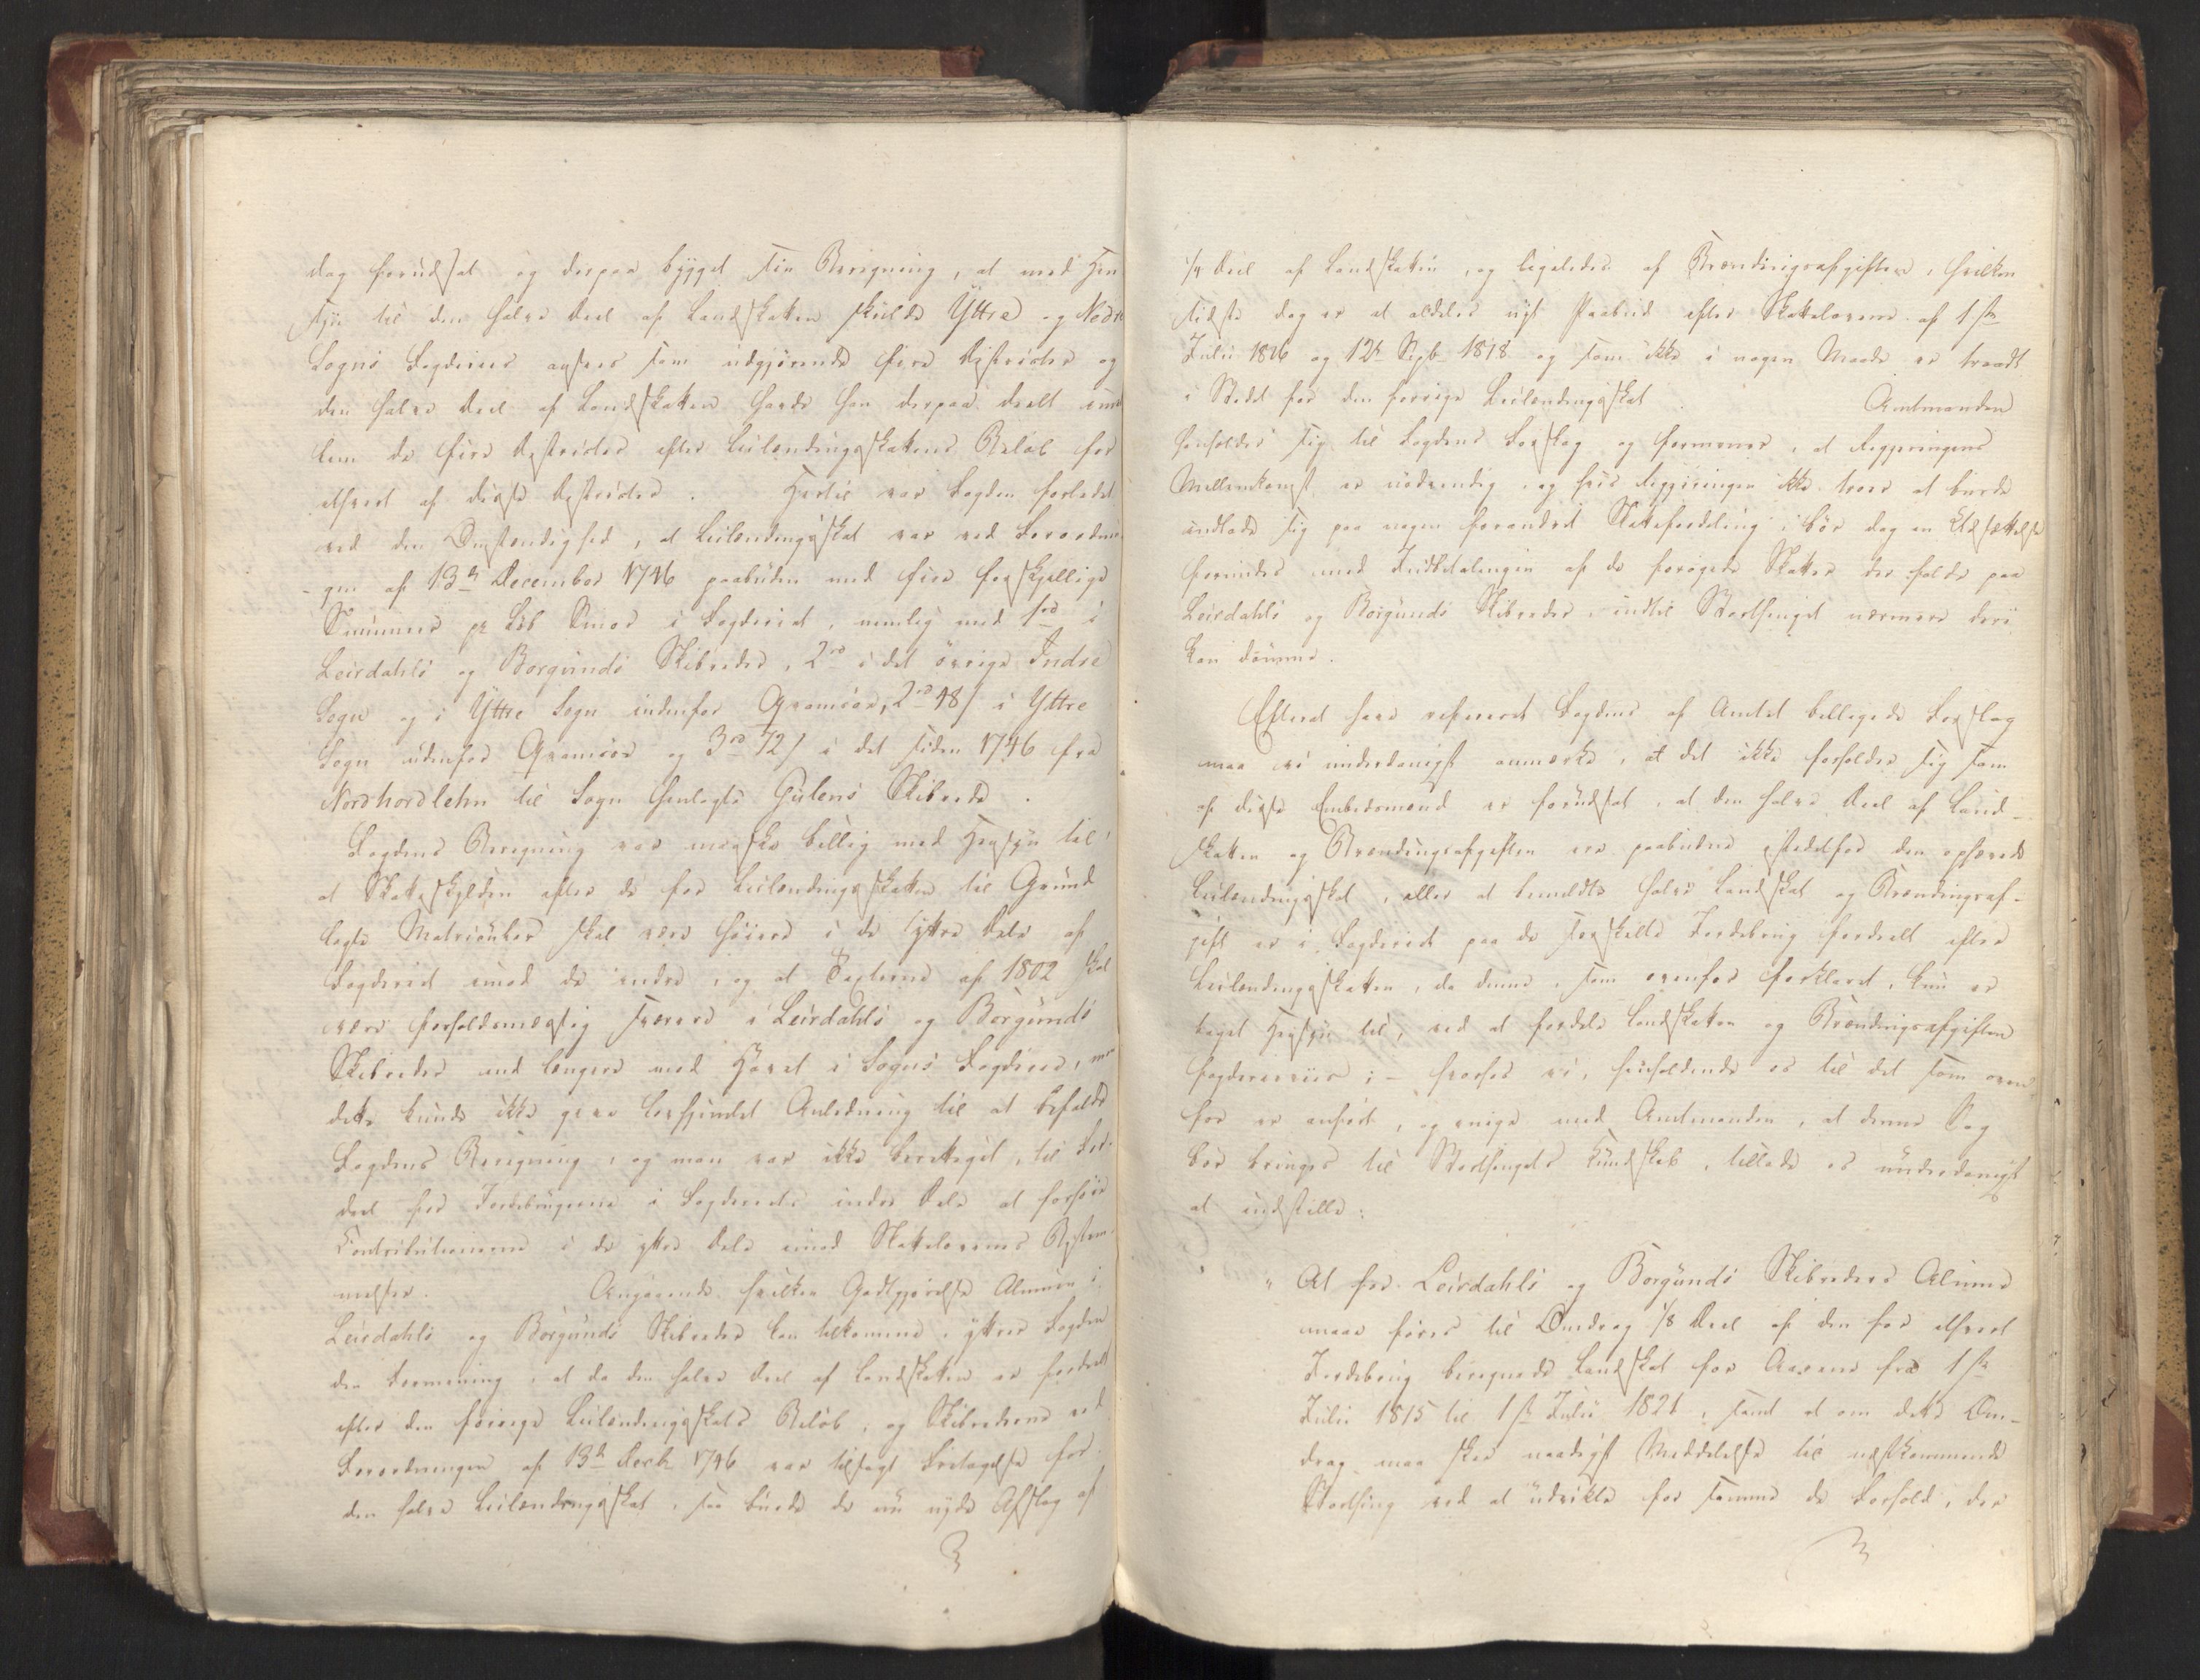 dog forudsat og derpaa bygget sin Beregning, at med Hen
syn til den halve Deel af Landskatten skulde Yttre og Nordre
Sogns Fogderier ansees som udgjørende fire Districter og
den halve Deel af Landskatten havde han derpaa deelt imel
lem de fire Districter efter Leilændingsskattens Beløb for
ethvert af disse Districter. Hertil var Fogden forledet
ved den Omstændighed, at Leilændingsskat var ved Forordnin
gen af 13de December 1746 paabuden med fire forskjellige
Summer pr Løb Smør i Fogderiet, nemlig med 1rd i
Leirdahls og Borgunds Skibreder, 2rd i det øvrige Indre
Sogn og i Yttre Sogn indenfor Qvamsøe, 2rd 48 s i Yttre
Sogn udenfor Qvamsøe og 3rd 72 s i det siden 1746 fra
Nordhordlehn til Sogn henlagte Gulens Skibrede.
Fogdens Beregning var maaske billig med Hensyn til,
at Skatteskylden efter de for Leilændingsskatten til Grund
lagte Matriculer skal være høiere i de yttre Dele af
Fogderiet imod de indre, og at Taxterne af 1802 skal
være forholdsmæssig sværere i Leirdahls og Borgunds
Skibreder end længere mod Havet i Sogns Fogderie, men
dette kunde ikke give beføiet Anledning til at befalde
Fogdens Beregning, og man var ikke berettiget, til For-
deel for Jordbrugerne i Fogderiets indre Dele at forhøie
Contributionerne i de yttre Dele imod Skattelovens Bestem-
melser. Angaaende hvilken Godtgjørelse Almuen i
Leirdahls og Borgunds Skibreder kan tilkomme, yttrer Fogden
den Formening, at da den halve Deel af Landskatten er fordeelt
efter den forrige Leilændingsskats Beløb, og Skibrederne ved
Forordningen af 13de Decbr 1746 var tilsagt Fritagelse for
den halve Leilændingsskat, saa burde de nu nyde Afslag af
1/4 Deel af Landskatten, og ligeledes af Brændeviinsafgiften, hvilken
sidste dog er et aldeles nyt Paabud efter Skatteloven af 1ste
Julii 1816 og 12te Septbr 1818 og som ikke i nogen Maade er traadt
i Stedet for den forrige Leilændingsskat. Amtmanden
henholder sig til Fogdens Forslag og formener, at Regjeringens
Mellemkomst er nødvendig, og hvis Regjeringen ikke troer at burde
indlade sig paa nogen forandret Skattefordeling, bør dog en Udsættelse
forundes med Indbetalingen af de forøgede Skatter der falde paa
Leirdahls og Borgunds Skibreder, indtil Storthinget nærmere deri
kan dømme.
Efterat have refereret Fogdens af Amtet billigede Forslag
maa vi underdanigst anmærke, at det ikke forholder sig som
af disse Embedsmænd er forudsat, at den halve Deel af Land-
skatten og Brændeviinsafgiften ere paabudne istedetfor den ophævede
Leilændingsskat, eller at bemeldte halve Landskat og Brændeviinsaf-
gift er i Fogderiet paa de særskilte Jordebrug fordeelt efter
Leilændingsskatten, da denne, som ovenfor forklaret, kun er
taget Hensyn til, ved at fordele Landskatten og Brændeviinsafgiften
fogderieviis; – hvorfor vi, henholdende os til det som oven
for er anført, og enige med Amtmanden, at denne Sag
bør bringes til Storthingets Kundskab, tillade os underdanigst
at indstille:
" At for Leirdahls og Borgunds Skibreders Almue
maae føres til Omdrag 1/8 Deel af den for ethvert
Jordebrug beregnede Landskat for Aarene fra 1ste
Julii 1815 til 1ste Julii 1821, samt at om dette Om-
drag maa skee naadigst Meddelelse til næstkommende
Storthing ved at udvikle for samme de Forhold, der